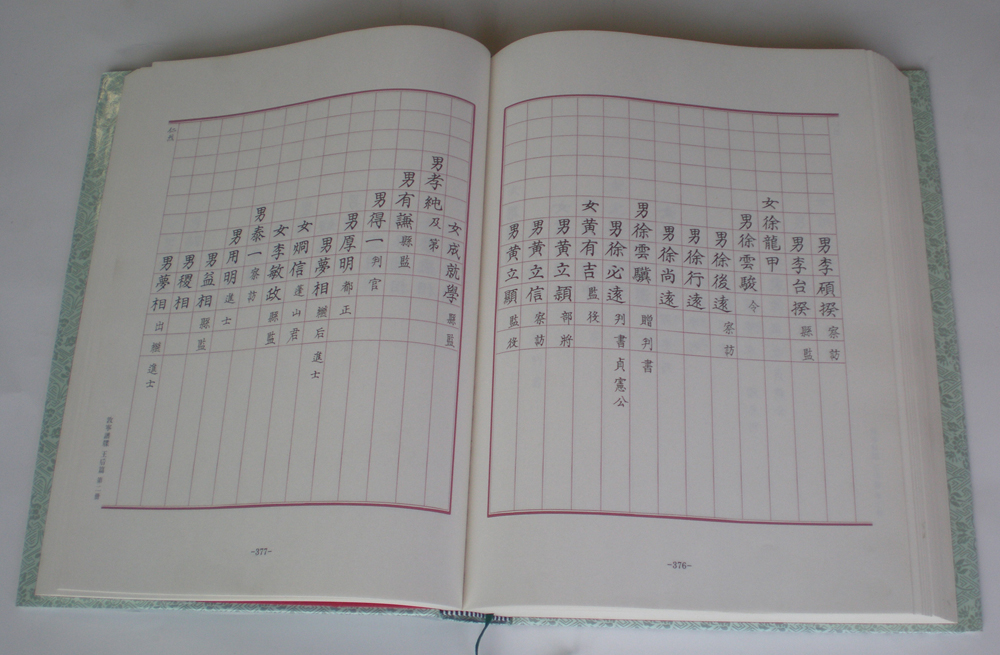 男李碩揆 察訪
男李台揆 縣監
女徐龍甲
男徐雲駿 令
男徐後遠 察訪
男徐行遠
男徐尚遠
男徐雲驥 贈判書
男徐必遠 判書貞憲公
女黃有吉 監役
男黃立頴 部將
男黃立信 察訪
男黃立顯 監役
-376-
女成就學 縣監
男孝純 及第
男有謙 縣監
男得一 判官
男厚明 都正
男夢相
進士
女嫻信 蓬山君
女李敏政 縣監
男泰一 察訪
男用明 進士
男益相 縣監
男稷相
男夢相 出繼 進士
-377-